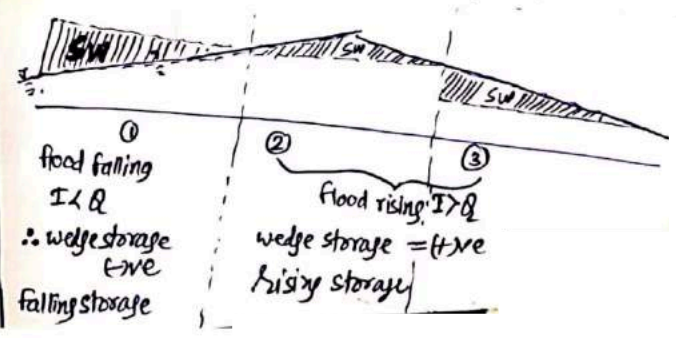 SW
SW
SW
①
flood falling
I<Q
∴ wedge storage
(-)ve
falling storage
②
③
flood rising I>Q
wedge storage = (+)ve
Rising storage